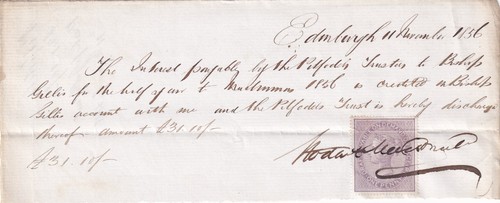 Edinburgh 11 November 1856
The Interest payable by the Pilfodels Trustees to Bishop
Gillis for the half year to Martinmas 1856 is credited in Bishop
Gillis account with me and the Pilfodels Trust is hereby discharge
thereof amount £31.10/-
£31.10/-